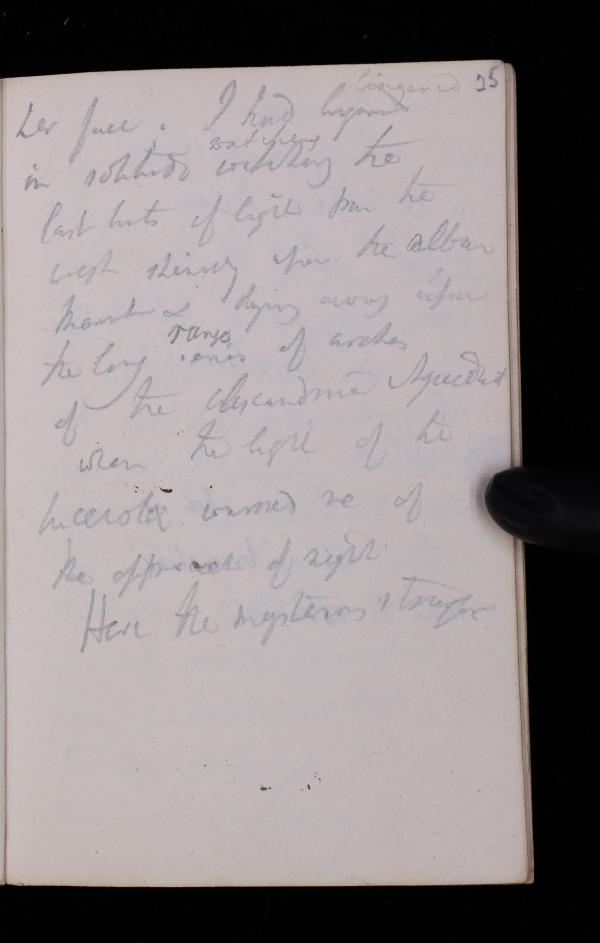 lingered 25
her face. I had lingered
watching
in solitude watching the
last tints of light from the
west shining upon the alban
Mount & dying away upon
range
the long series of arches
of the Alexandrine Aqueduct
when the light of the
lucerola warned me of
the approach of night
Here the mysterious stranger